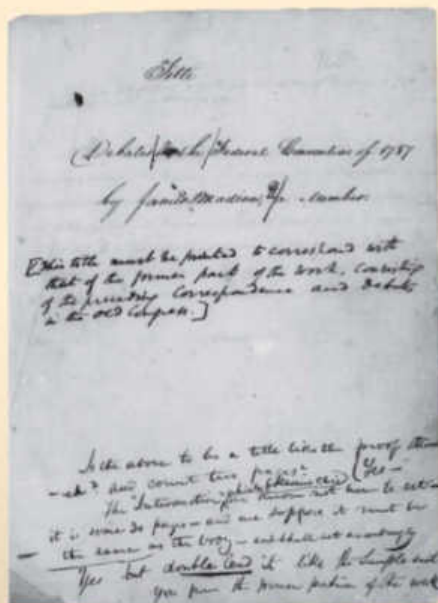 Title
Debates in the Federal Convention of 1787
by James Madison, a Member.
[This title must be printed to correspond with
that of the former part of the work, consisting
of the preceding Correspondence and Debates
in the Old Congress.]
Is the above to be a title like the proof
and count two pages?
(Yes—
The Introduction
it is some 30 pages — and we suppose it must be
the same as the body — and shall set accordingly
Yes but double lead it like the sample
you